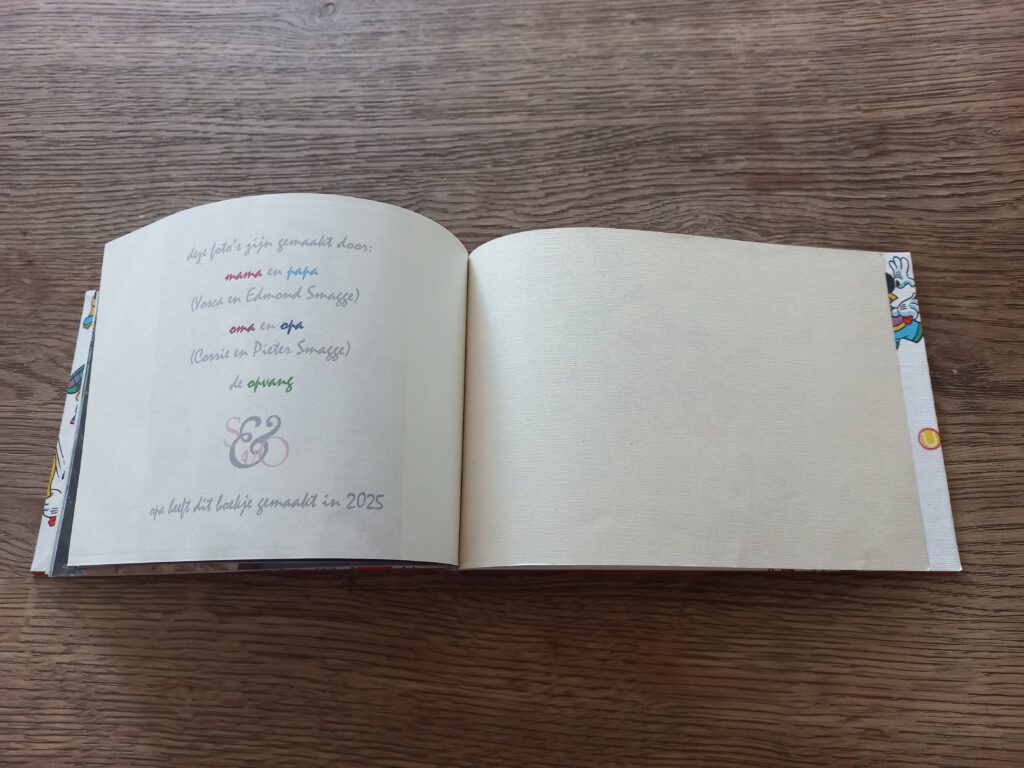 deze foto's zijn gemaakt door:
mama en papa
(Yosca en Edmond Smagge)
oma en opa
(Corrie en Pieter Smagge)
de opvang
S&O
opa heeft dit boekje gemaakt in 2025